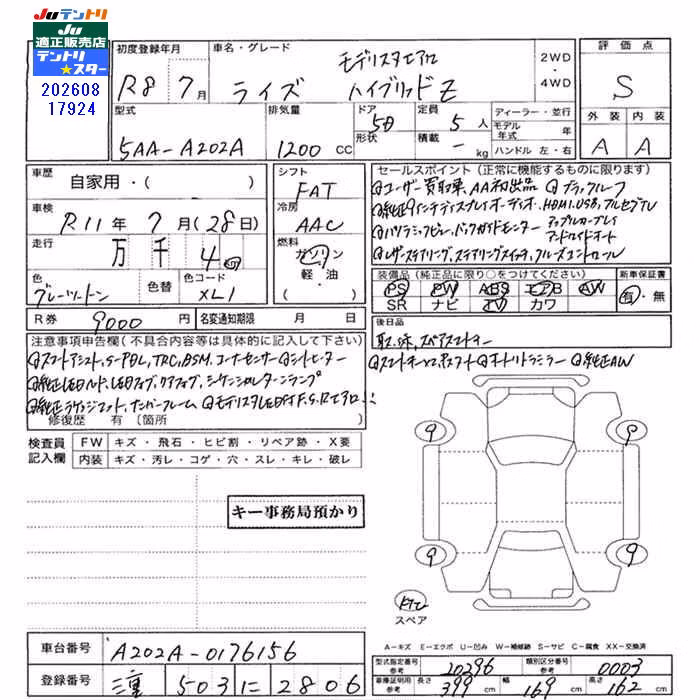 JUテントリ
JU
適正販売店
テントリ
★スター
202608
17924
初度登録年月
R8年7月
車名・グレード
モデリスタエアロ
ライズ ハイブリッドZ
2WD
・
4WD
評価点
S
外装 内装
A A
型式
5AA-A202A
排気量
1200 cc
ドア
5D
形状
定員
5人
積載
- kg
ディーラー・並行
モデル年式 年
ハンドル 左・右
車歴
自家用・( )
車検
R11年7月(28日)
走行
万 千 4
シフト
FAT
冷房
AAC
燃料
ガソリン
軽・油
( )
色
グレーツートン
色替
色コード
XL1
R券 9000円
名変通知期限 月 日
セールスポイント(正常に機能するものに限ります)
ユーザー買取車、AA初出品 ブラックルーフ
純正9インチディスプレイオーディオ、HDMI、USB、フルセグTV
パノラミックビュー、バックガイドモニター アップルカープレイ
アンドロイドオート
レザーステアリング、ステアリングスイッチ、クルーズコントロール
装備品(純正品に限り○をつけてください)
PS PW ABS エアB AW
SR ナビ TV カワ
新車保証書
有・無
後日品
取、保、スペアスマートキー
スマートキー×2、プッシュスタート オートリトラミラー 純正AW
注意事項申告欄(不具合内容等は具体的に記入して下さい)
スマートアシスト、S-PDL、TRC、BSM、コーナーセンサー シートヒーター
純正LEDヘッド、LEDフォグ、リアフォグ、シーケンシャルターンランプ
純正ラゲッジマット、ナンバーフレーム モデリスタLED付F、S、Rエアロ
修復歴 有 〔箇所 〕
検査員
記入欄
FW キズ・飛石・ヒビ割・リペア跡・X要
内装 キズ・汚レ・コゲ・穴・スレ・キレ・破レ
キー事務局預かり
9 9
9 9
スペア
A=キズ E=エクボ U=凹み W=補修跡 S=サビ C=腐食 XX=交換済
車台番号
A202A-0176156
登録番号
三重 503 に 2806
型式指定番号
参考
20296
類別区分番号
参考
0003
車検証明用
参考
長さ 399 cm 幅 169 cm 高さ 162 cm